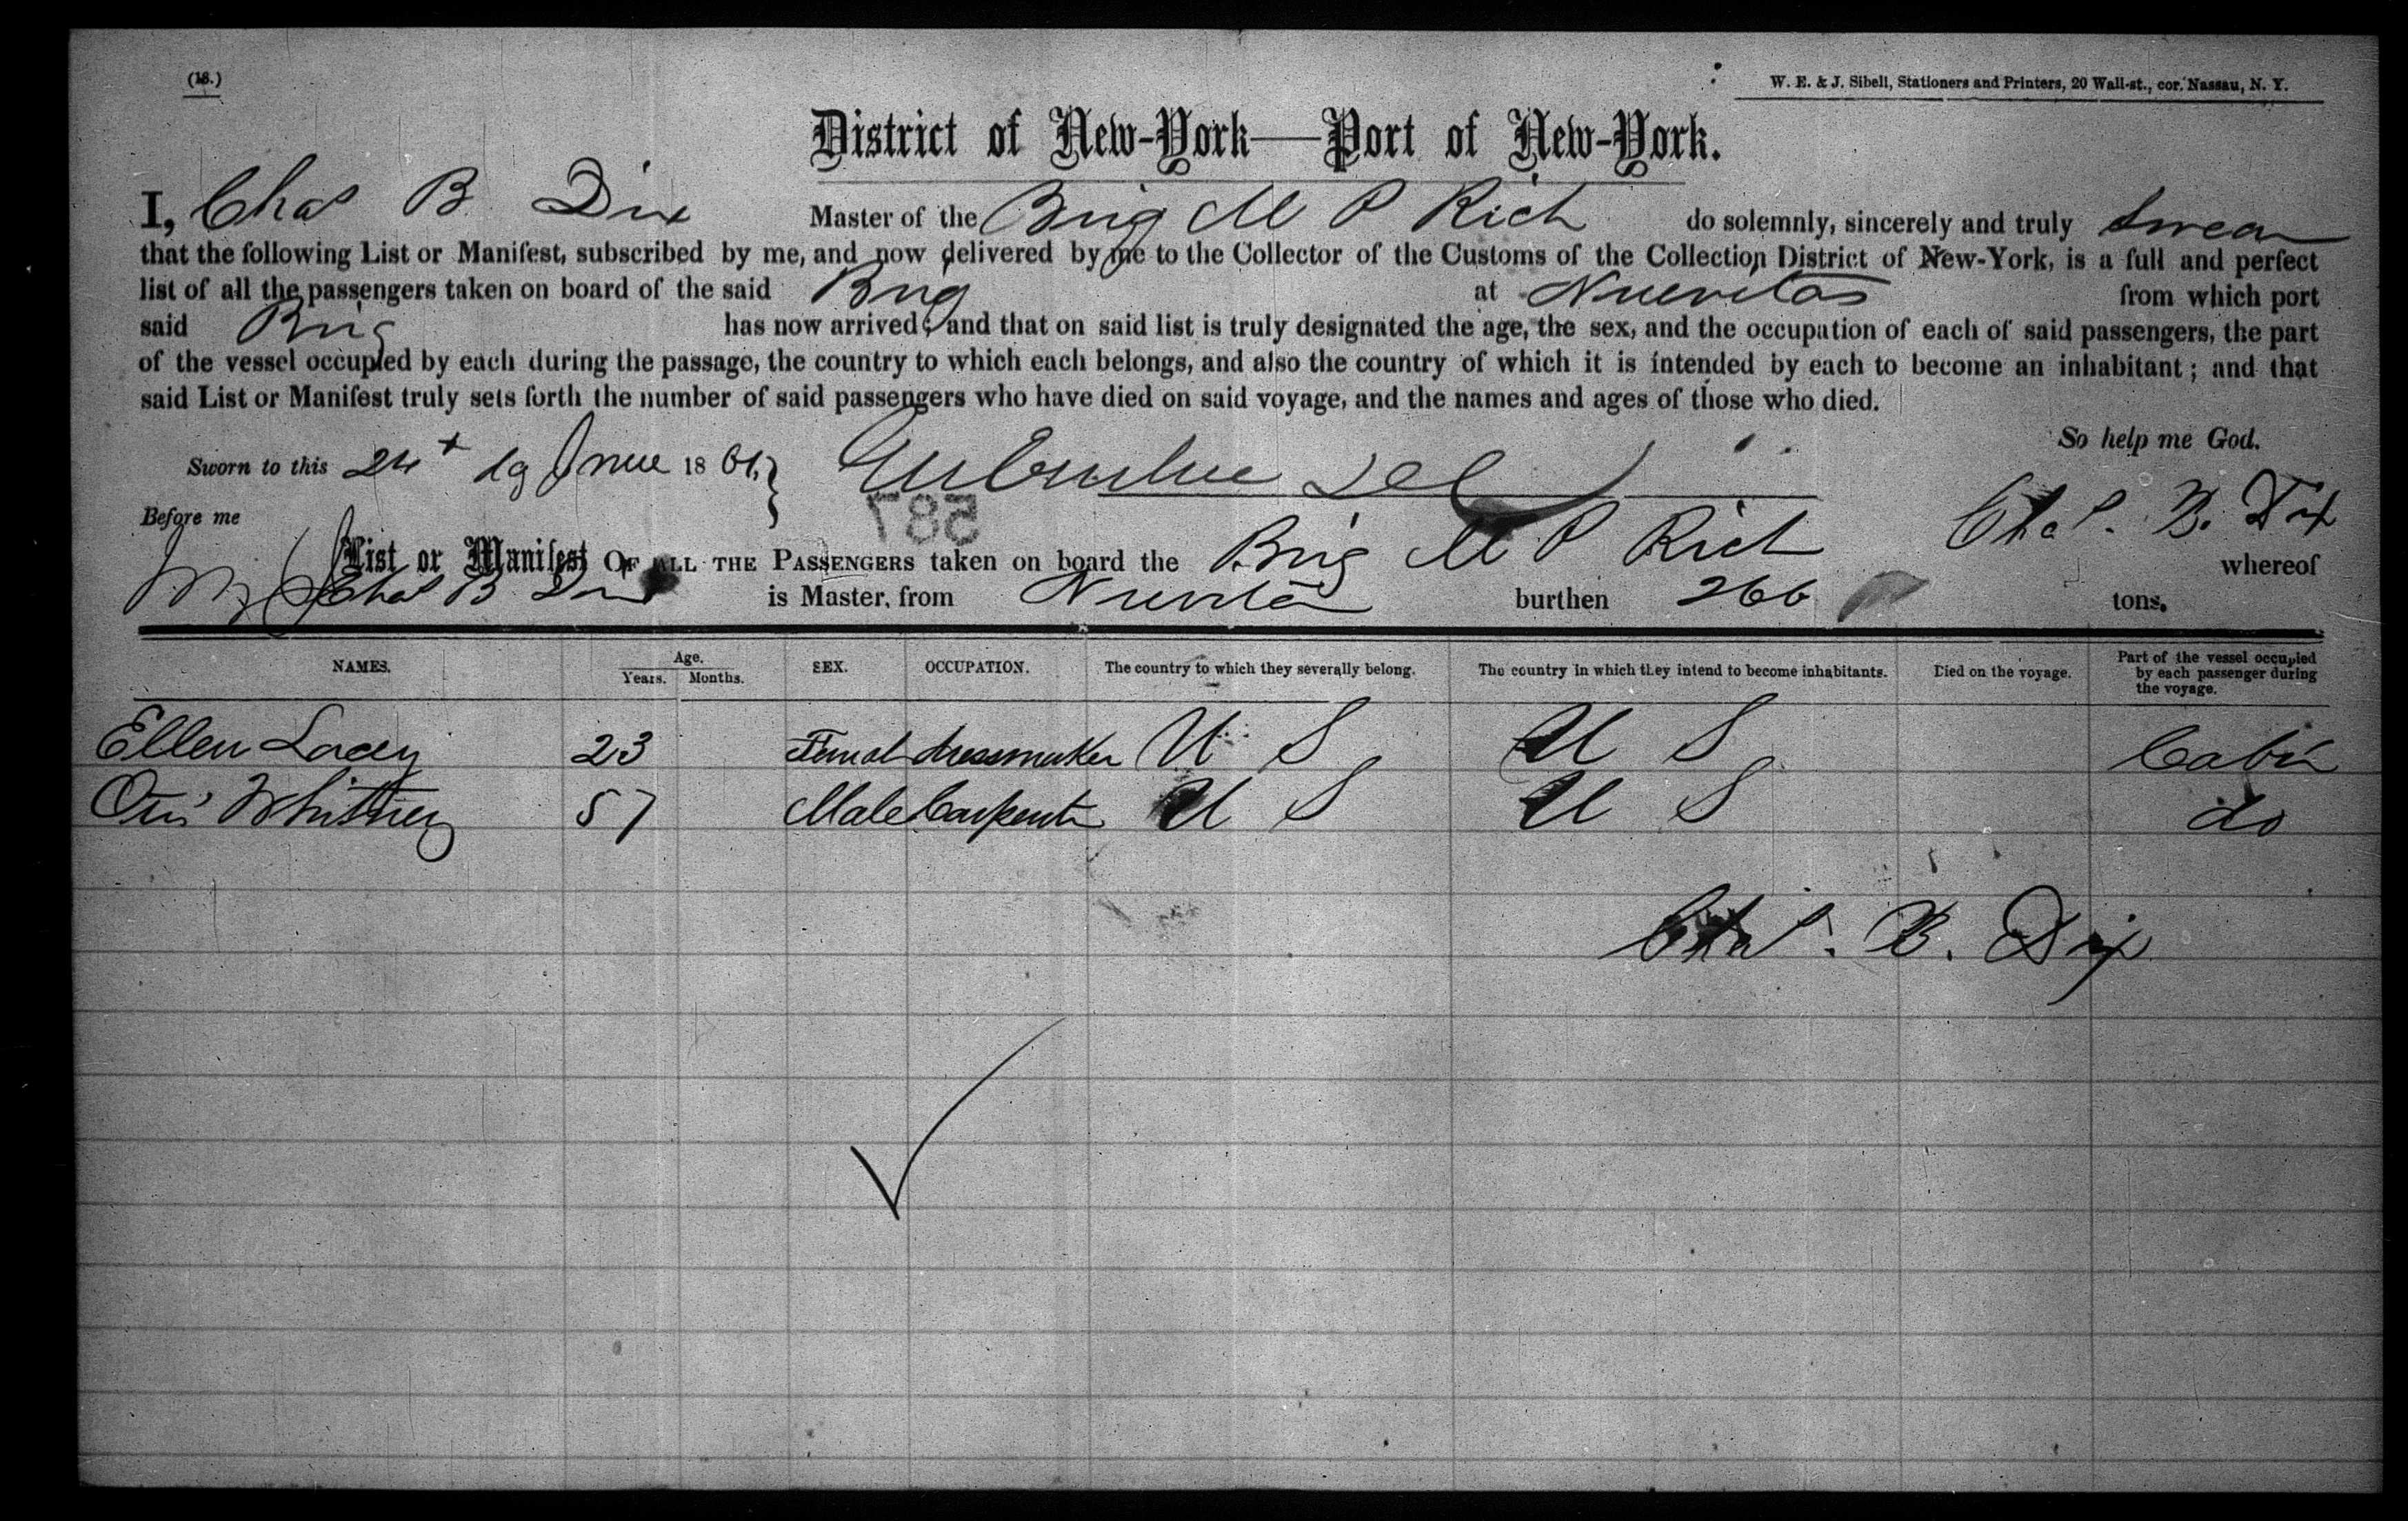 (18.)
W. E. & J. Sibell, Stationers and Printers, 20 Wall-st., cor. Nassau, N. Y.
District of New-York—Port of New-York.
I, Chas B. Dix Master of the Brig M P Rich do solemnly, sincerely and truly swear
that the following List or Manifest, subscribed by me, and now delivered by me to the Collector of the Customs of the Collection District of New-York, is a full and perfect
list of all the passengers taken on board of the said Brig at Nuevitas from which port
said Brig has now arrived; and that on said list is truly designated the age, the sex, and the occupation of each of said passengers, the part
of the vessel occupied by each during the passage, the country to which each belongs, and also the country of which it is intended by each to become an inhabitant; and that
said List or Manifest truly sets forth the number of said passengers who have died on said voyage, and the names and ages of those who died.
So help me God.
Sworn to this 24 June 1861
Chas. B. Dix
Before me
587
List or Manifest OF ALL THE PASSENGERS taken on board the Brig M P Rich whereof
Chas B Dix is Master, from Nuevitas burthen 266 tons.
NAMES. Age. Years. Months. SEX. OCCUPATION. The country to which they severally belong. The country in which they intend to become inhabitants. Died on the voyage. Part of the vessel occupied by each passenger during the voyage.
Ellen Lacey 23 Female dressmaker U S U S Cabin
Otis Whitney 57 Male Carpenter U S U S do
Chas. B. Dix